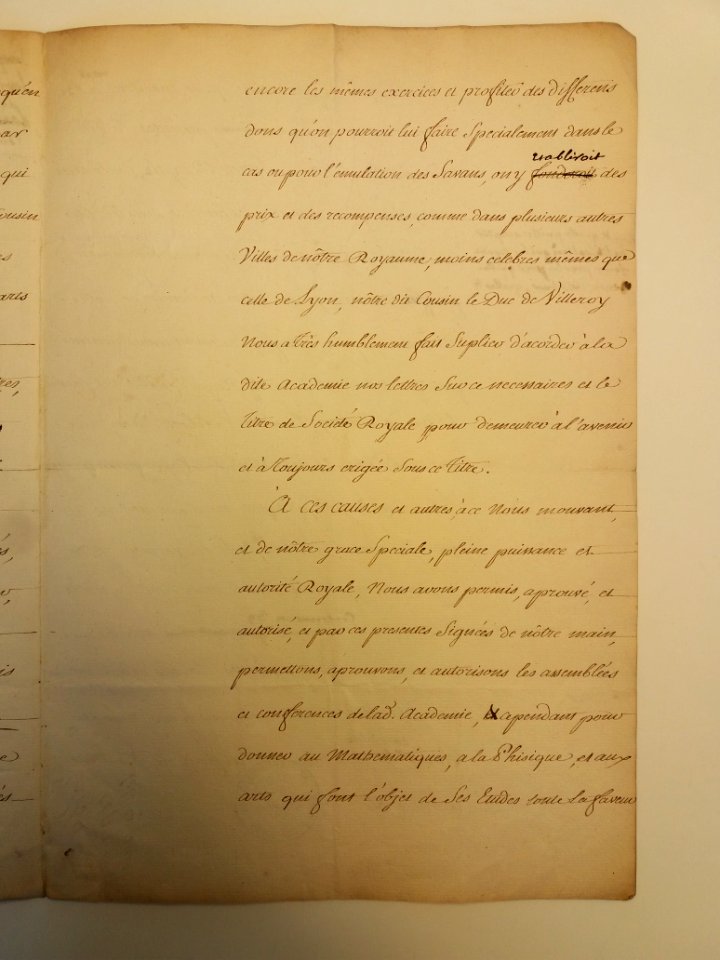 quén
ar
qui
ousin
es
arts
res,
s,
is
e
és
encore les mêmes exercices et profiter des differens
dons qu'on pourroit lui faire Specialement dans le
etabliroit
cas ou pour l'emulation des Savans, on y fonderoit des
prix et des recompenses, comme dans plusieurs autres
Villes de nôtre Royaume, moins celebres mêmes que
celle de Lyon, nôtre dit Cousin le Duc de Villeroy
Nous a Très humblement fait Suplier d'acorder à la
dite Academie nos lettres Sur ce necessaires et le
Titre de Societé Royale pour demeurer à l'avenir
et à Toujours erigée Sous ce Titre.
A ces causes et autres, à ce Nous mouvant,
et de nôtre grace Speciale, pleine puissance et
autorité Royale, Nous avons permis, aprouvé, et
autorisé, et par ces presentes Signées de nôtre main,
permettons, aprouvons, et autorisons les assemblées
et conferences de lad. Academie, &
cependant pour
donner au Mathematiques, a la Phisique, et aux
arts qui font l'objet de Ses Etudes toute la faveur